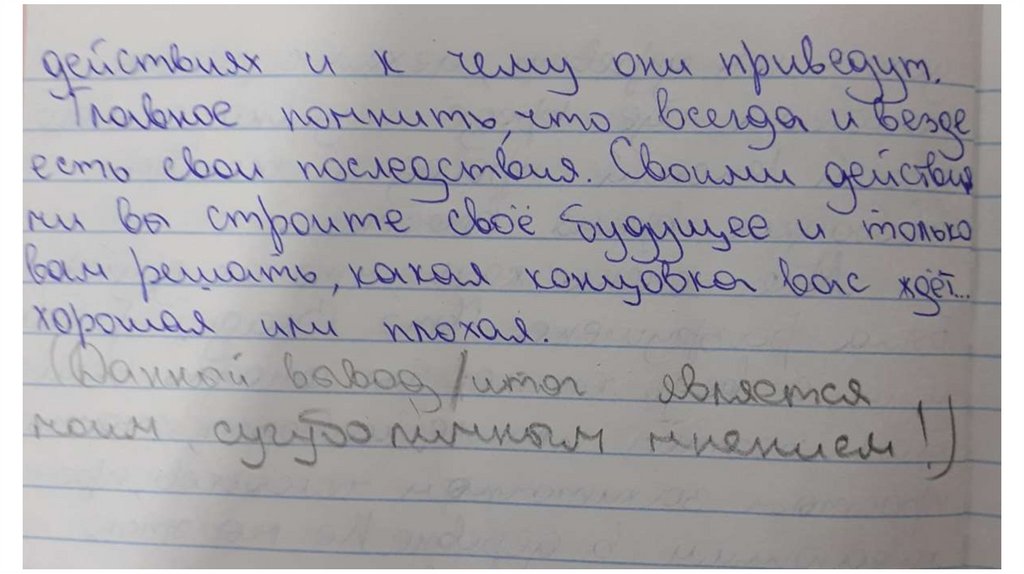 действиях и к чему они приведут.
Главное помнить, что всегда и везде
есть свои последствия. Своими действия
ми вы строите своё будущее и только
вам решать, какая концовка вас ждёт...
хорошая или плохая.
(Данной вывод/итог является
моим сугубо личным мнением!)